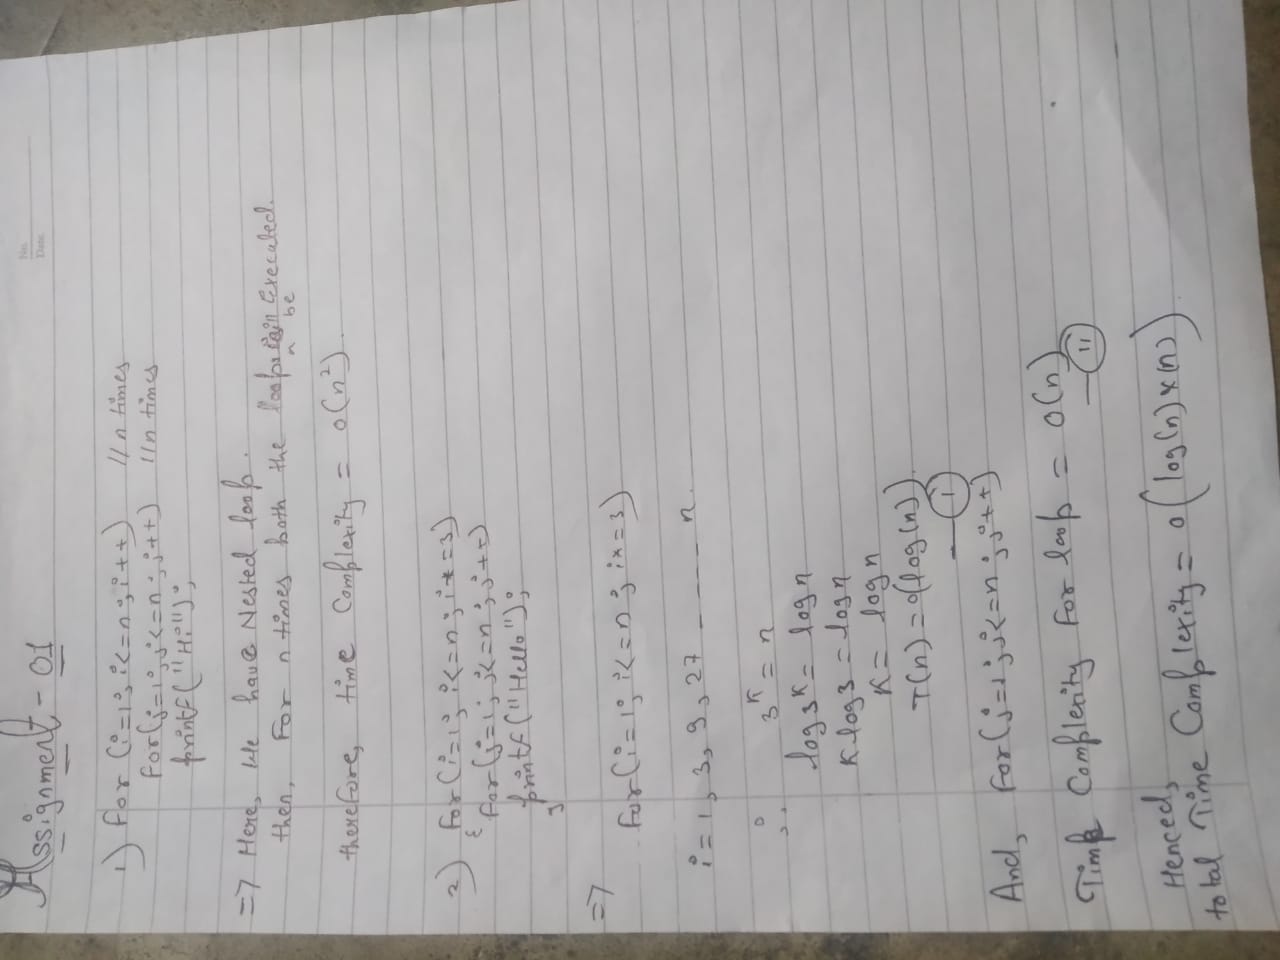 No.
Date
Assignment - 01
1) for (i=1; i<=n; i++) // n times
for(j=1; j<=n; j++) // n times
printf("Hi");
=> Here, We have Nested loop.
then, For n times both the loops be executed.
therefore, time Complexity = O(n²).
2) for(i=1; i<=n; i*=3)
{ for(j=1; j<=n; j++)
printf("Hello");
}
=> for(i=1; i<=n; i*=3)
i = 1, 3, 9, 27 ----- n.
∴ 3^K = n
log3^K = logn
K log3 = logn
K = logn
T(n) = O(log(n))
— I
And, for(j=1; j<=n; j++)
Time Complexity for loop = O(n)
— II
Henced,
total Time Complexity = O(log(n)×(n))